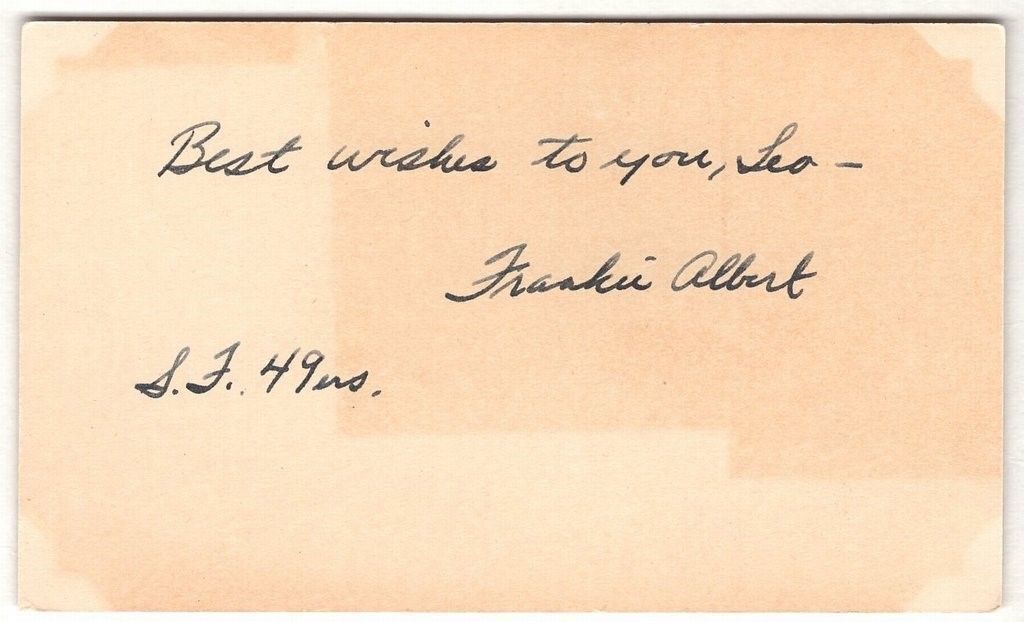 Best wishes to you, Leo –
Frankie Albert
S.F. 49ers.